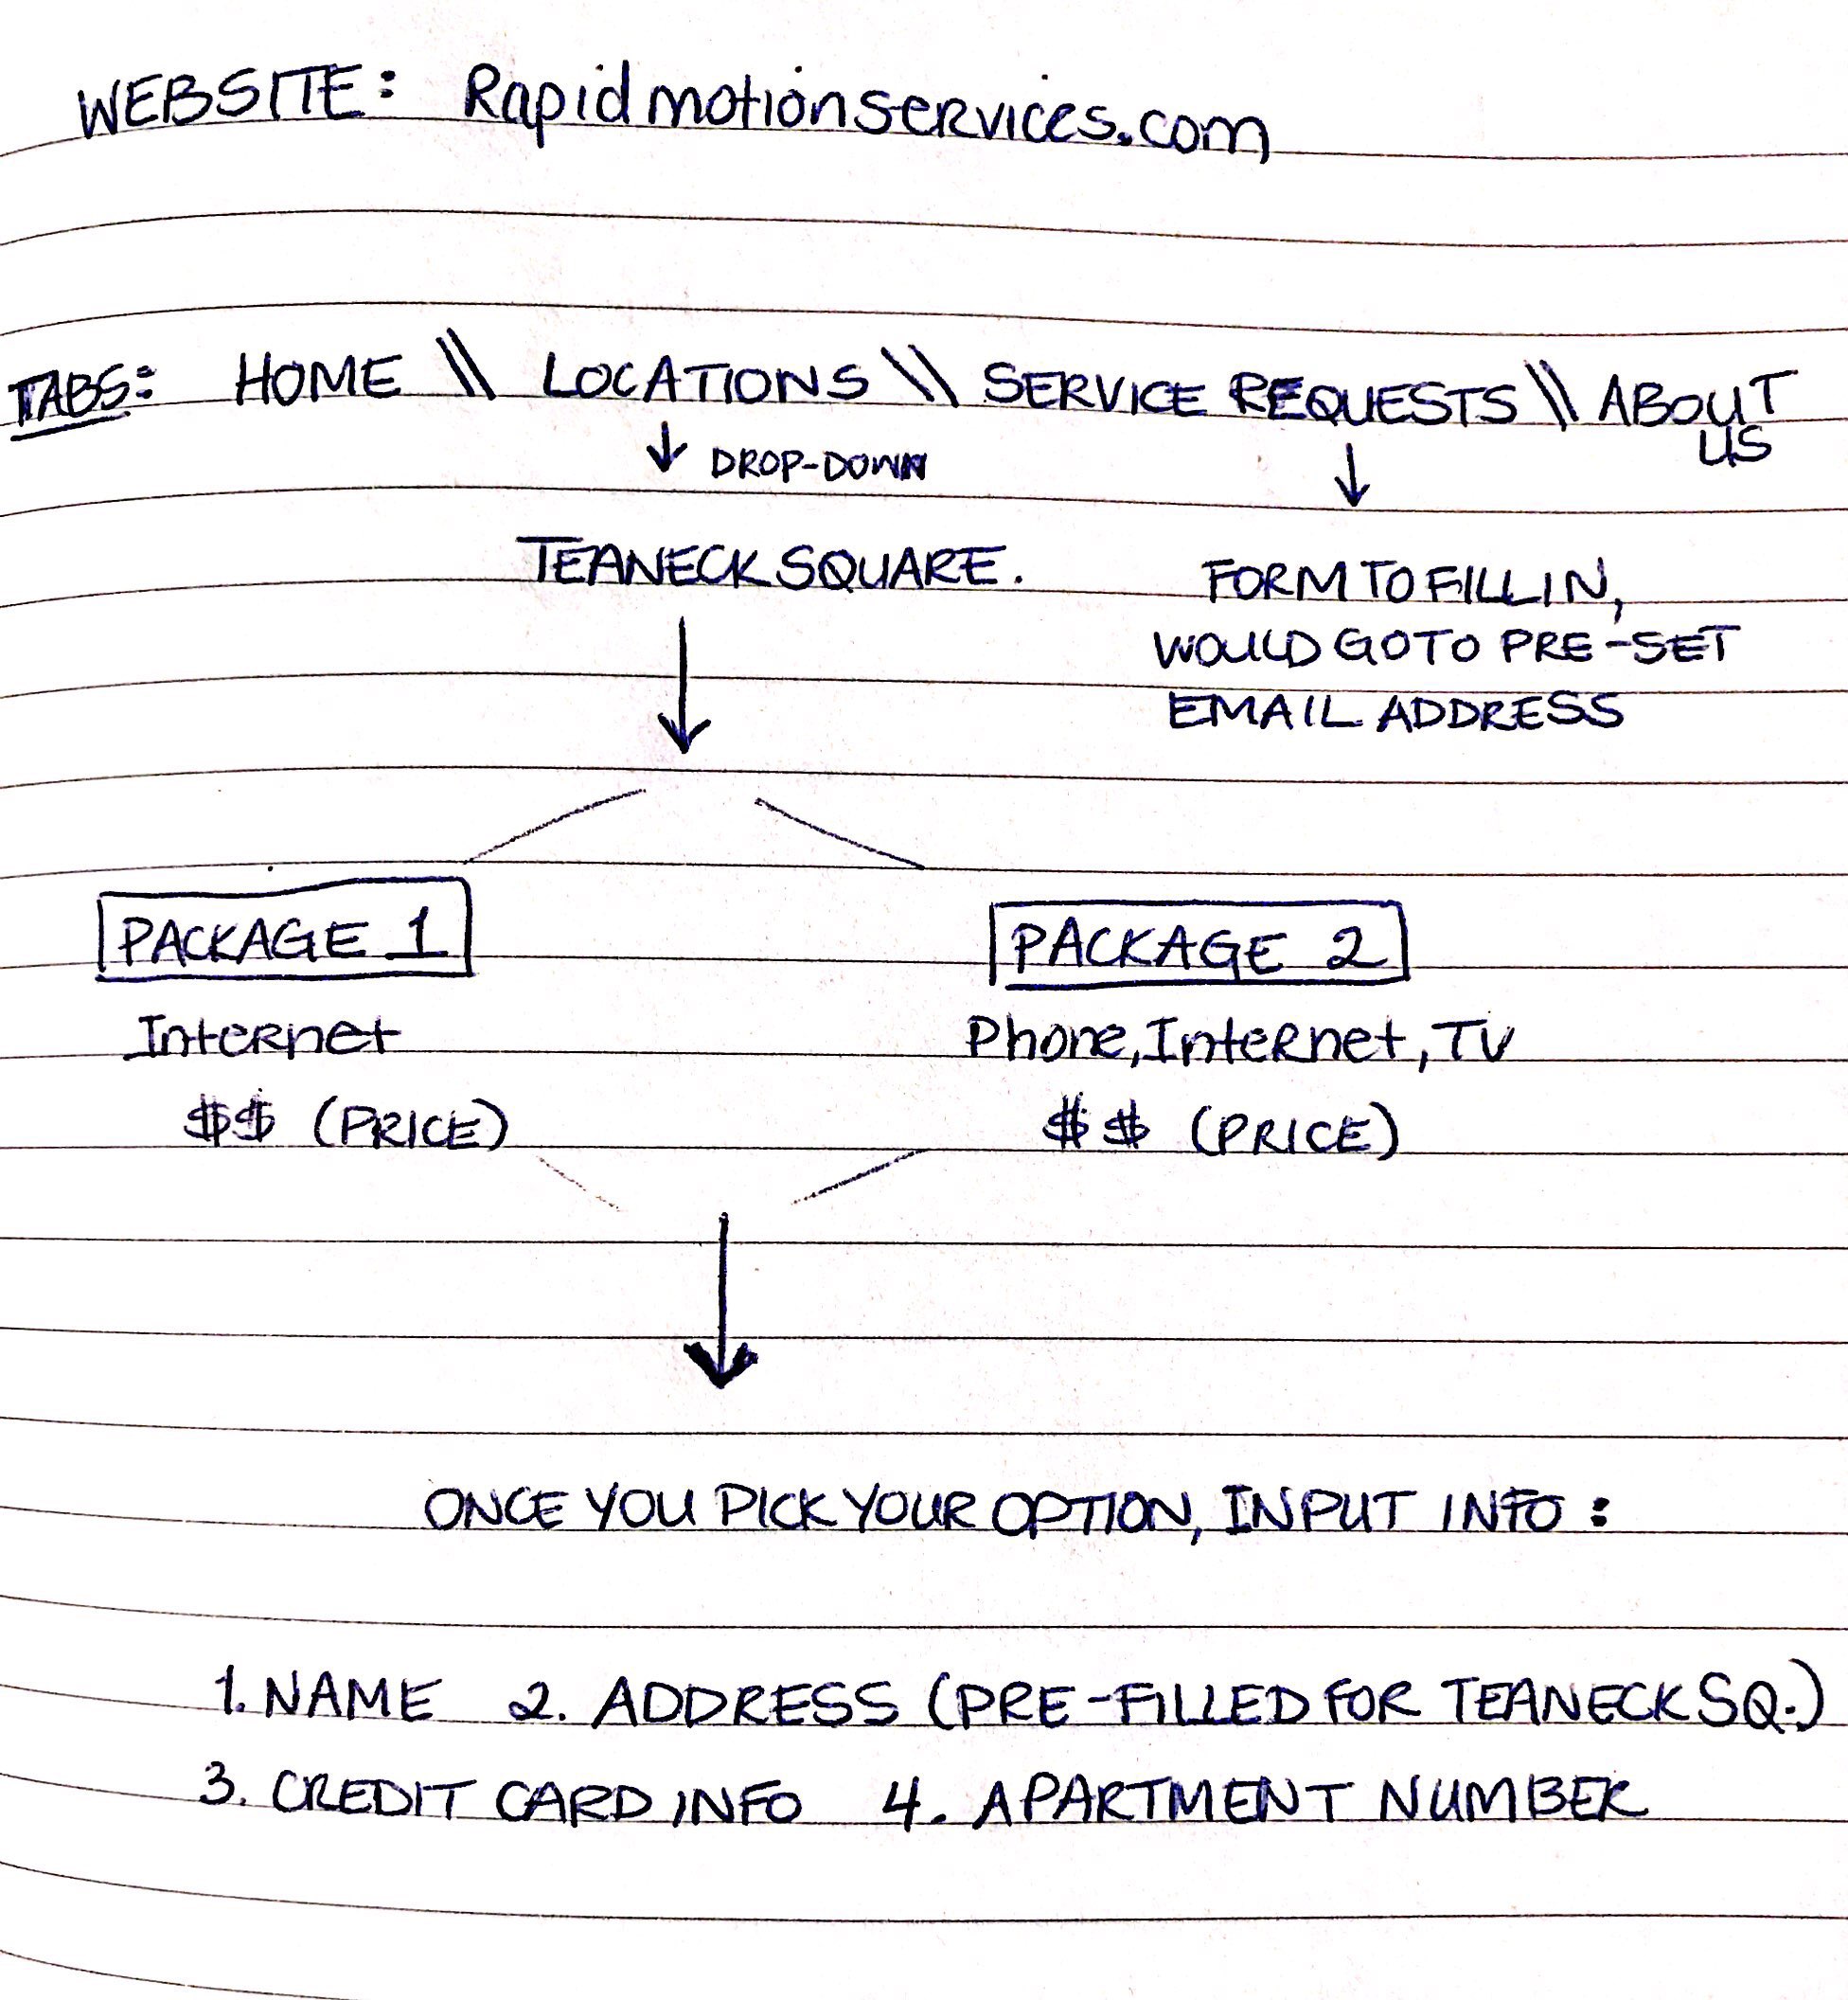 WEBSITE: Rapidmotionservices.com
TABS: HOME \\ LOCATIONS \\ SERVICE REQUESTS \\ ABOUT US
↓ DROP-DOWN ↓
TEANECK SQUARE.
FORM TO FILL IN,
WOULD GO TO PRE-SET
EMAIL ADDRESS
PACKAGE 1
Internet
$$ (PRICE)
PACKAGE 2
Phone, Internet, TV
$$ (PRICE)
ONCE YOU PICK YOUR OPTION, INPUT INFO:
1. NAME 2. ADDRESS (PRE-FILLED FOR TEANECK SQ.)
3. CREDIT CARD INFO 4. APARTMENT NUMBER